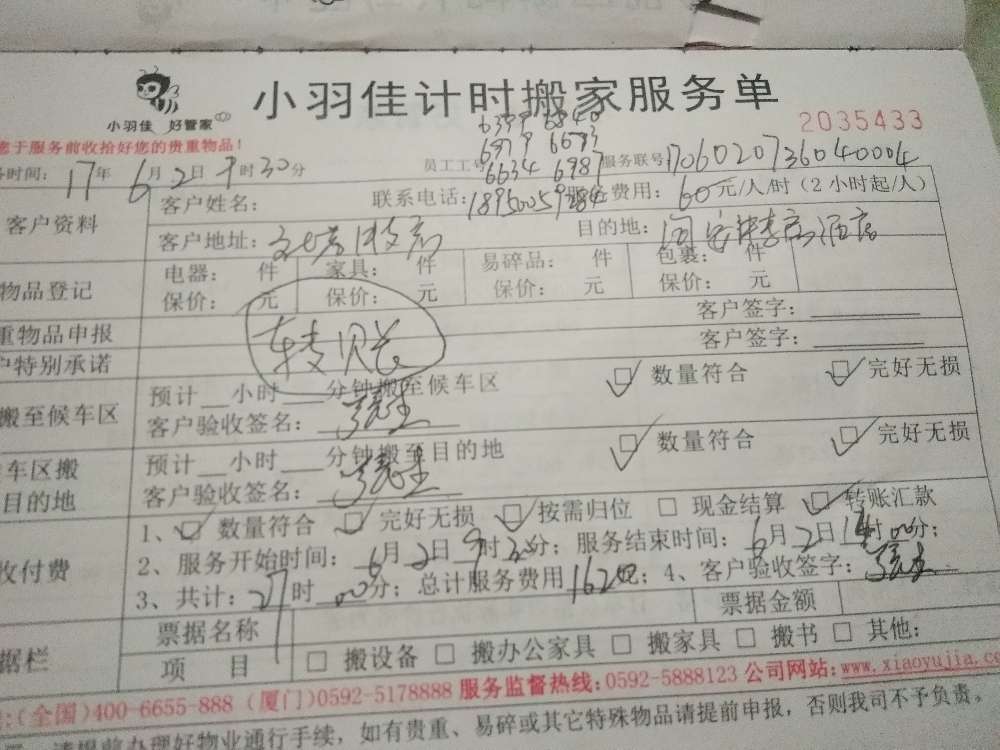 小羽佳计时搬家服务单
小羽佳 好管家
2035433
您于服务前收拾好您的贵重物品!
6634 6987
务时间: 17年 6月 2日 9时 30分 员工工号 服务联号 170602073604 0004
客户资料
客户姓名: 联系电话: 服务费用: 60元/人/时（2小时起/人）
客户地址: 目的地:
物品登记
电器: 件 家具: 件 易碎品: 件 包裹: 件
保价: 元 保价: 元 保价: 元 保价: 元
重物品申报 客户签字:
户特别承诺 转账 客户签字:
搬至候车区
预计 小时 分钟搬至候车区 数量符合 完好无损
客户验收签名:
车区搬
目的地
预计 小时 分钟搬至目的地 数量符合 完好无损
客户验收签名:
收付费
1、 数量符合 完好无损 按需归位 现金结算 转账汇款
2、服务开始时间: 6月 2日 9时 30分; 服务结束时间: 6月 2日 14时 00分;
3、共计: 27时 00分; 总计服务费用 1620元; 4、客户验收签字:
据栏
票据名称 票据金额
项 目 搬设备 搬办公家具 搬家具 搬书 其他:
:(全国)400-6655-888 (厦门)0592-5178888 服务监督热线:0592-5888123 公司网站:www.xiaoyujia.co
请提前办理好物业通行手续，如有贵重、易碎或其它特殊物品请提前申报，否则我司不予负责。